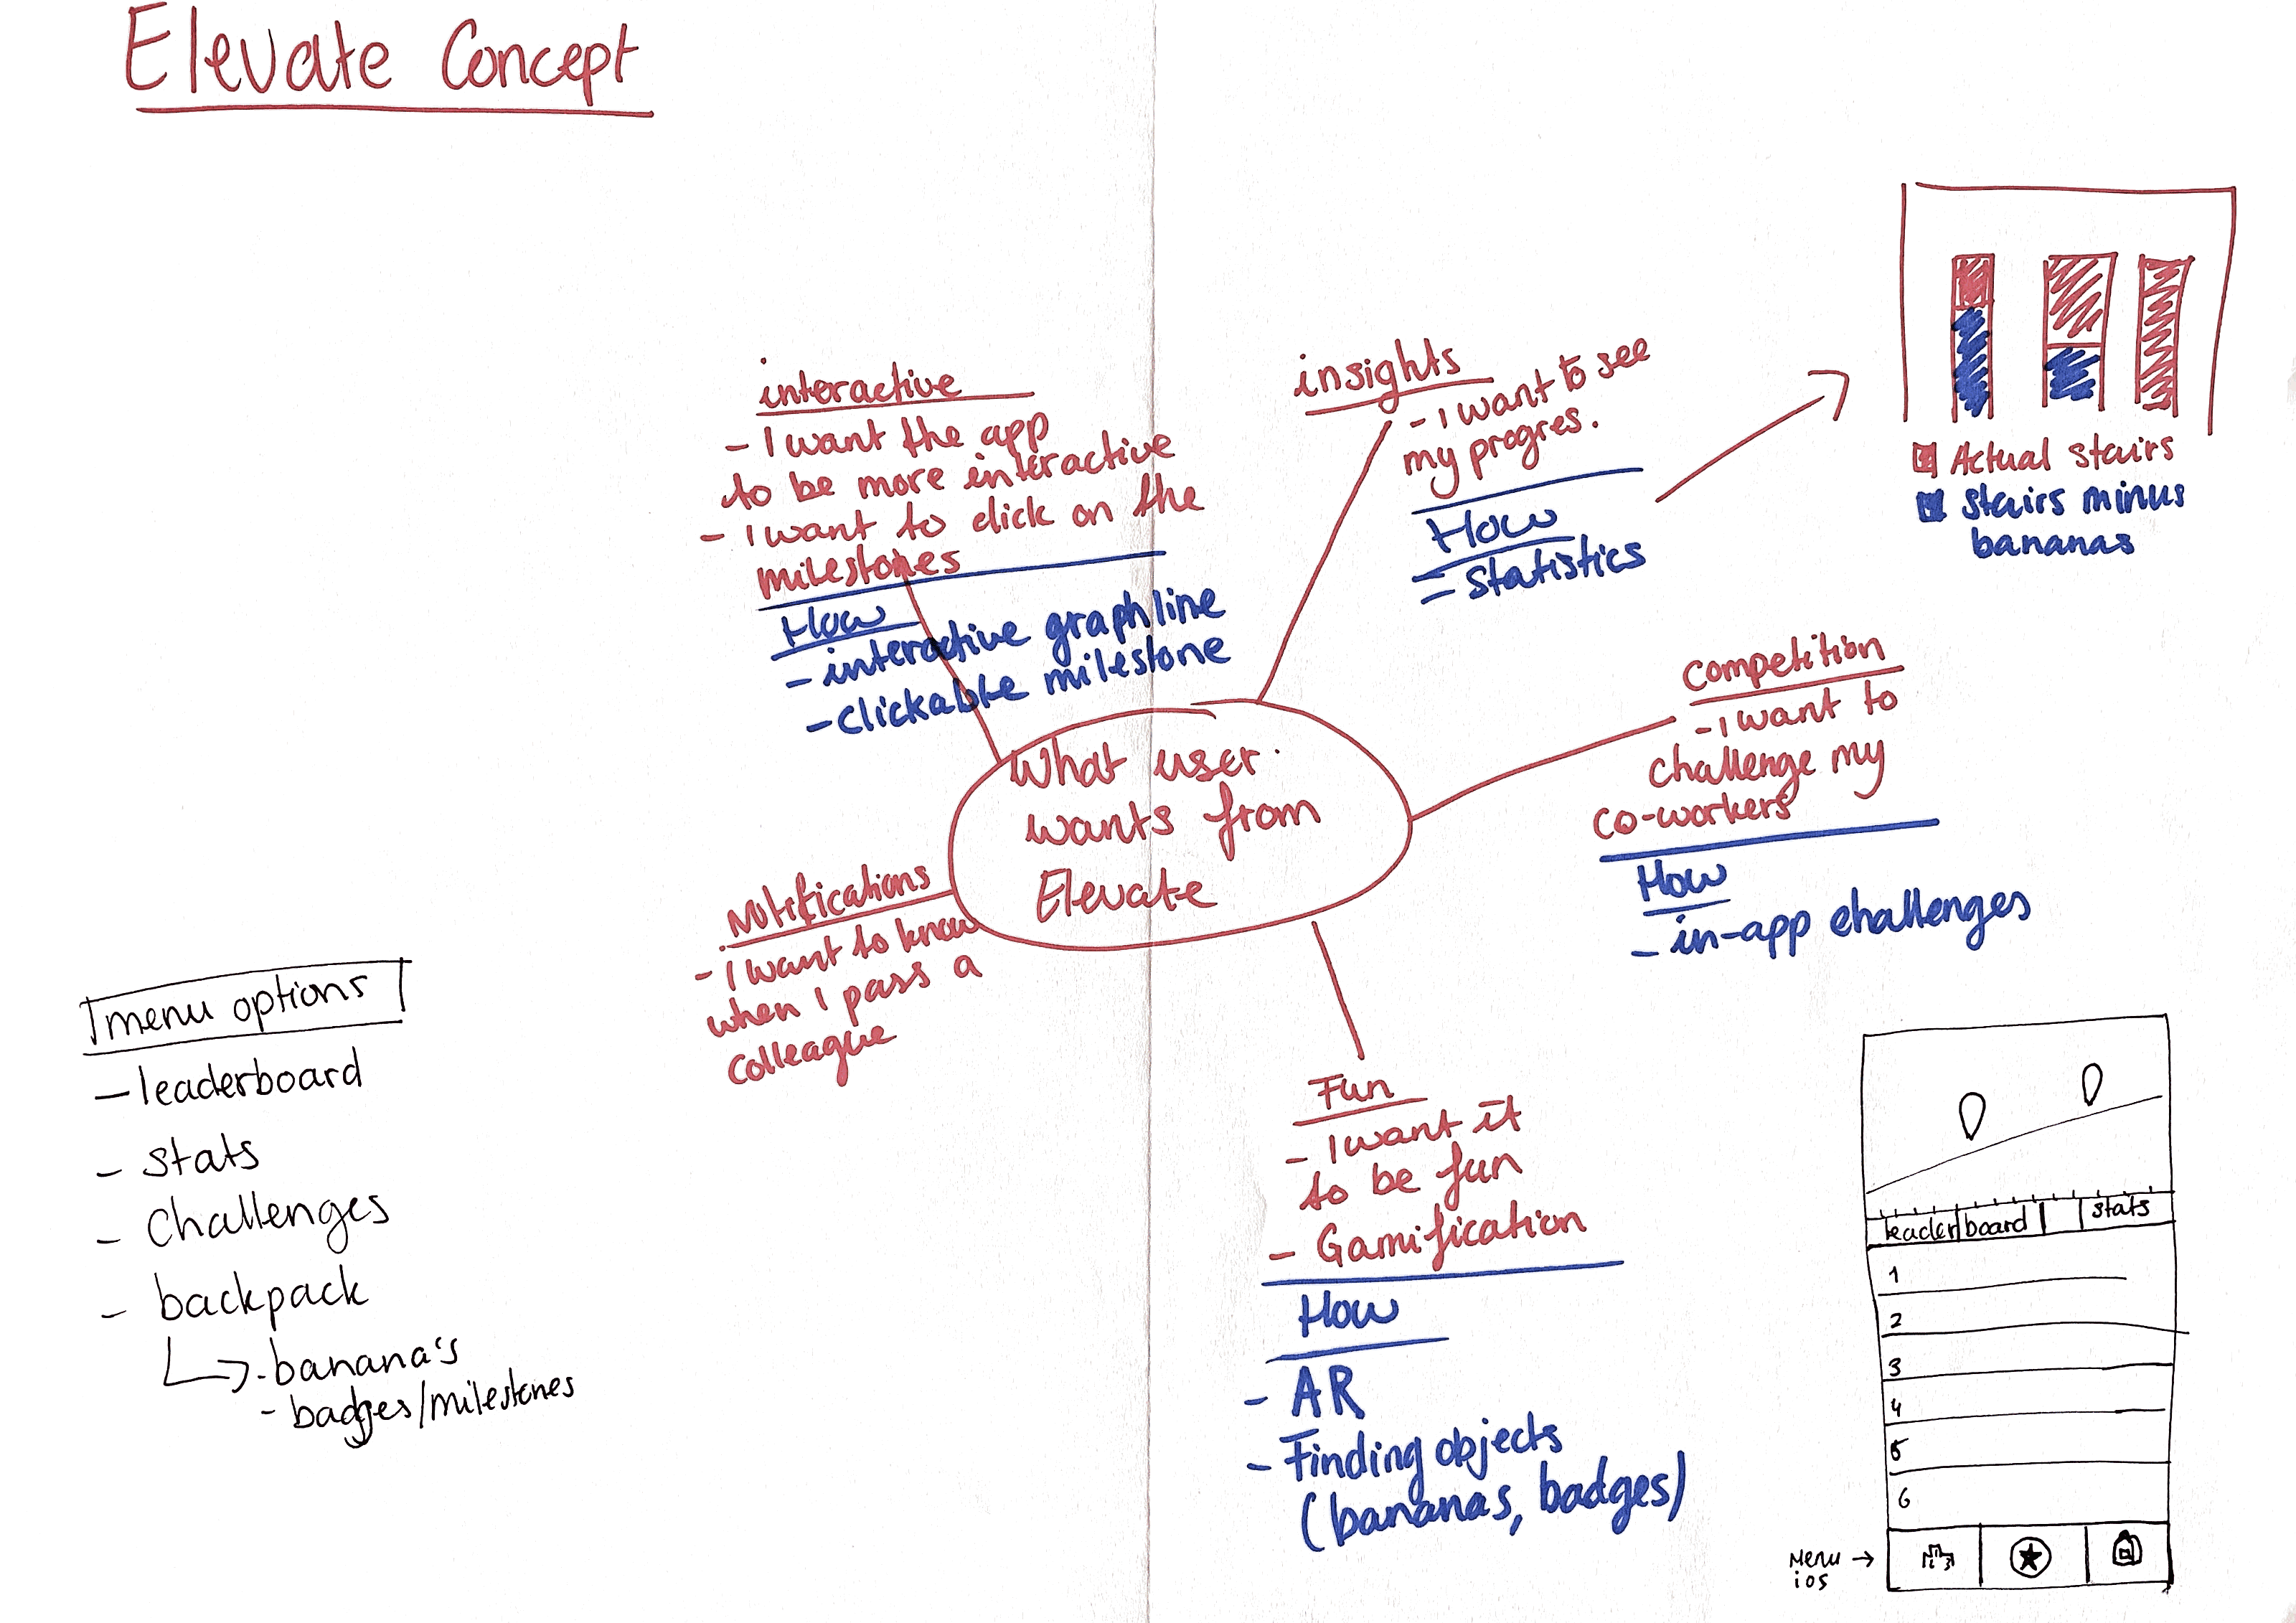 Elevate Concept
interactive
- I want the app
to be more interactive
- I want to click on the
milestones
How
- interactive graphline
- clickable milestone
insights
- I want to see
my progres.
How
- statistics
Actual stairs
stairs minus
bananas
Competition
- I want to
challenge my
co-workers
How
- in-app challenges
What user
wants from
Elevate
Notifications
- I want to know
when I pass a
colleague
Fun
- I want it
to be fun
- Gamification
How
- AR
- Finding objects
(bananas, badges)
menu options
- leaderboard
- stats
- challenges
- backpack
- banana's
- badges/milestones
leaderboard stats
1
2
3
4
5
6
Menu →
ios